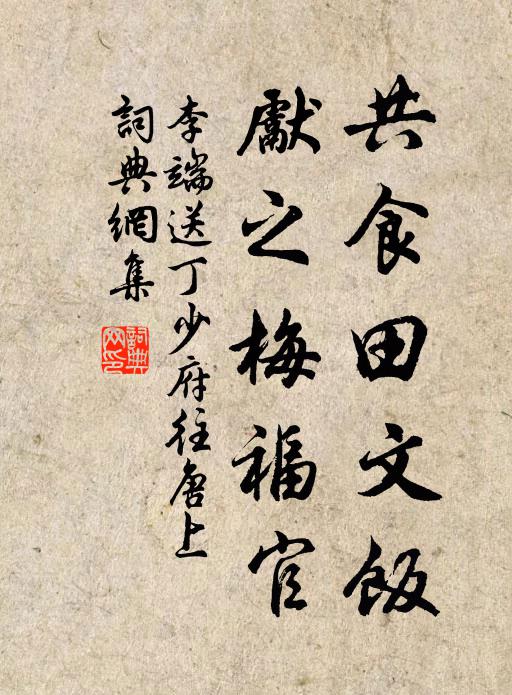 共食田文飯
獻之梅福官
李端送丁少府往唐上
詞典網集
詞典网印